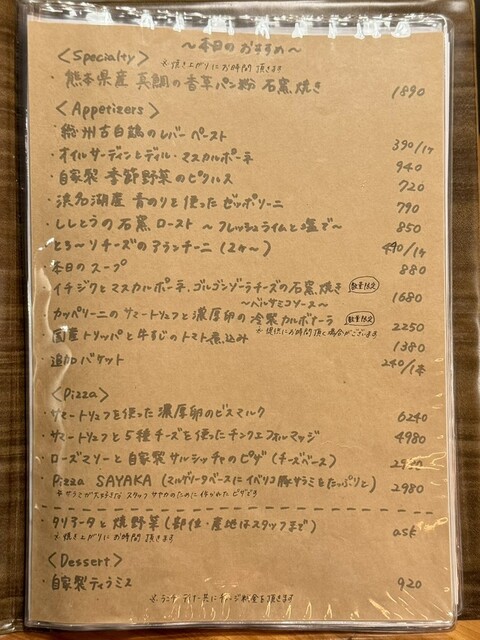 ～本日のおすすめ～
〈Specialty〉 ※焼き上がりにお時間頂きます
・熊本県産 真鯛の香草パン粉 石窯焼き 1890
〈Appetizers〉
・総州古白鶏のレバーペースト 390/1ヶ
・オイルサーディンとディル・マスカルポーネ 940
・自家製 季節野菜のピクルス 720
・浜名湖産 青のりを使ったゼッポリーニ 790
・ししとうの石窯ロースト ～フレッシュライムと塩で～ 850
・とろ～りチーズのアランチーニ(2ヶ～) 490/1ヶ
・本日のスープ 880
・イチジクとマスカルポーネ、ゴルゴンゾーラチーズの石窯焼き 数量限定
～バルサミコソース～ 1680
・カッペリーニのサマートリュフと濃厚卵の冷製カルボナーラ 数量限定 2250
※提供にお時間頂く場合がございます
・国産トリッパと牛すじのトマト煮込み 1380
・追加バゲット 240/1本
〈Pizza〉
・サマートリュフを使った濃厚卵のビスマルク 6240
・サマートリュフと5種チーズを使ったチンクエフォルマッジ 4980
・ローズマリーと自家製サルシッチャのピザ(チーズベース)
・Pizza SAYAKA(マルゲリータベースにイベリコ豚サラミをたっぷりと) 2980
※サラミが大好きなスタッフサヤカのために作られたピザです
・タリアータと焼野菜(部位・産地はスタッフまで) ask
※焼き上がりにお時間頂きます
〈Dessert〉
・自家製ティラミス 920
※ランチ ディナー共にチャージ料金を頂きます